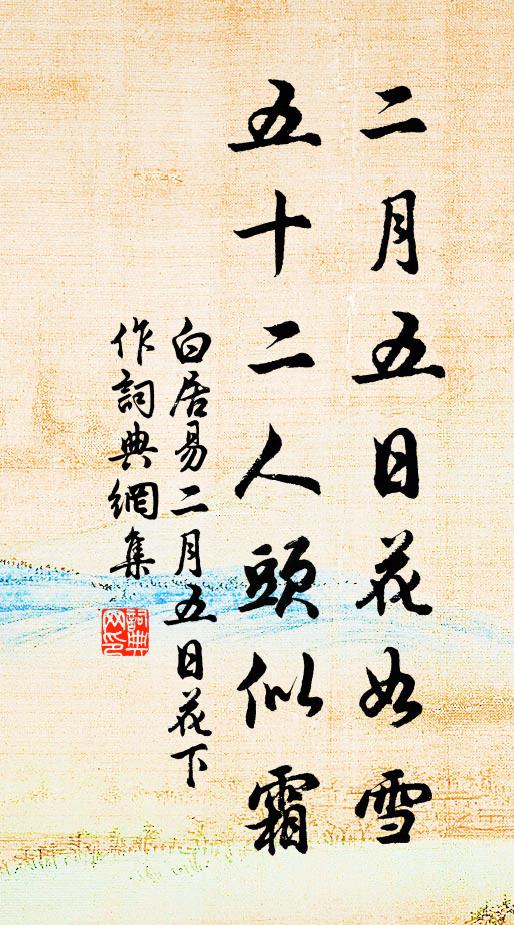 二月五日花如雪
五十二人頭似霜
白居易二月五日花下
作詞典網集
詞典
网印